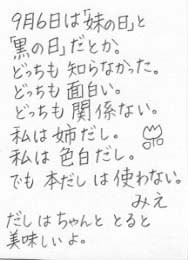 9月6日は「妹の日」と
「黒の日」だとか。
どっちも知らなかった。
どっちも面白い。
どっちも関係ない。
私は姉だし。
私は色白だし。
でも本だしは使わない。
みえ
だしはちゃんととると
美味しいよ。